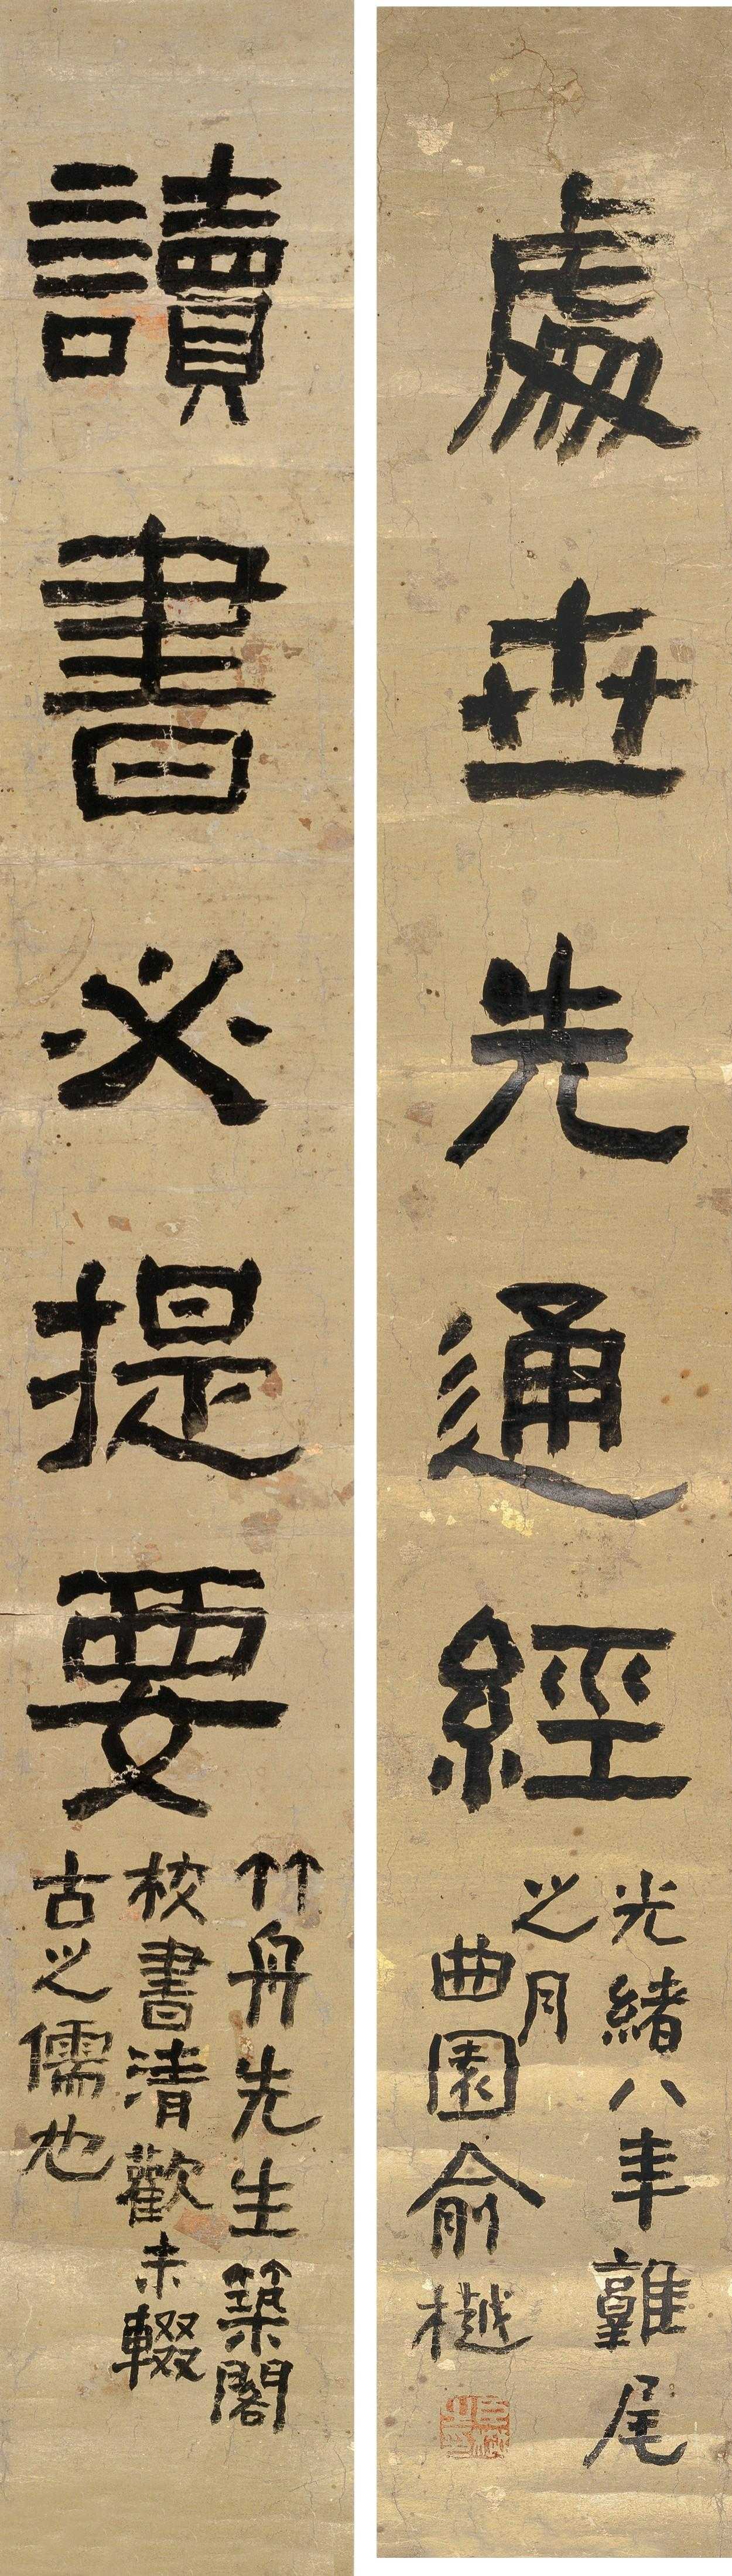 處世先通經
光緒八年鶉尾
之月
曲園俞樾
讀書必提要
竹舟先生築閣
校書清歡未輟
古之儒也